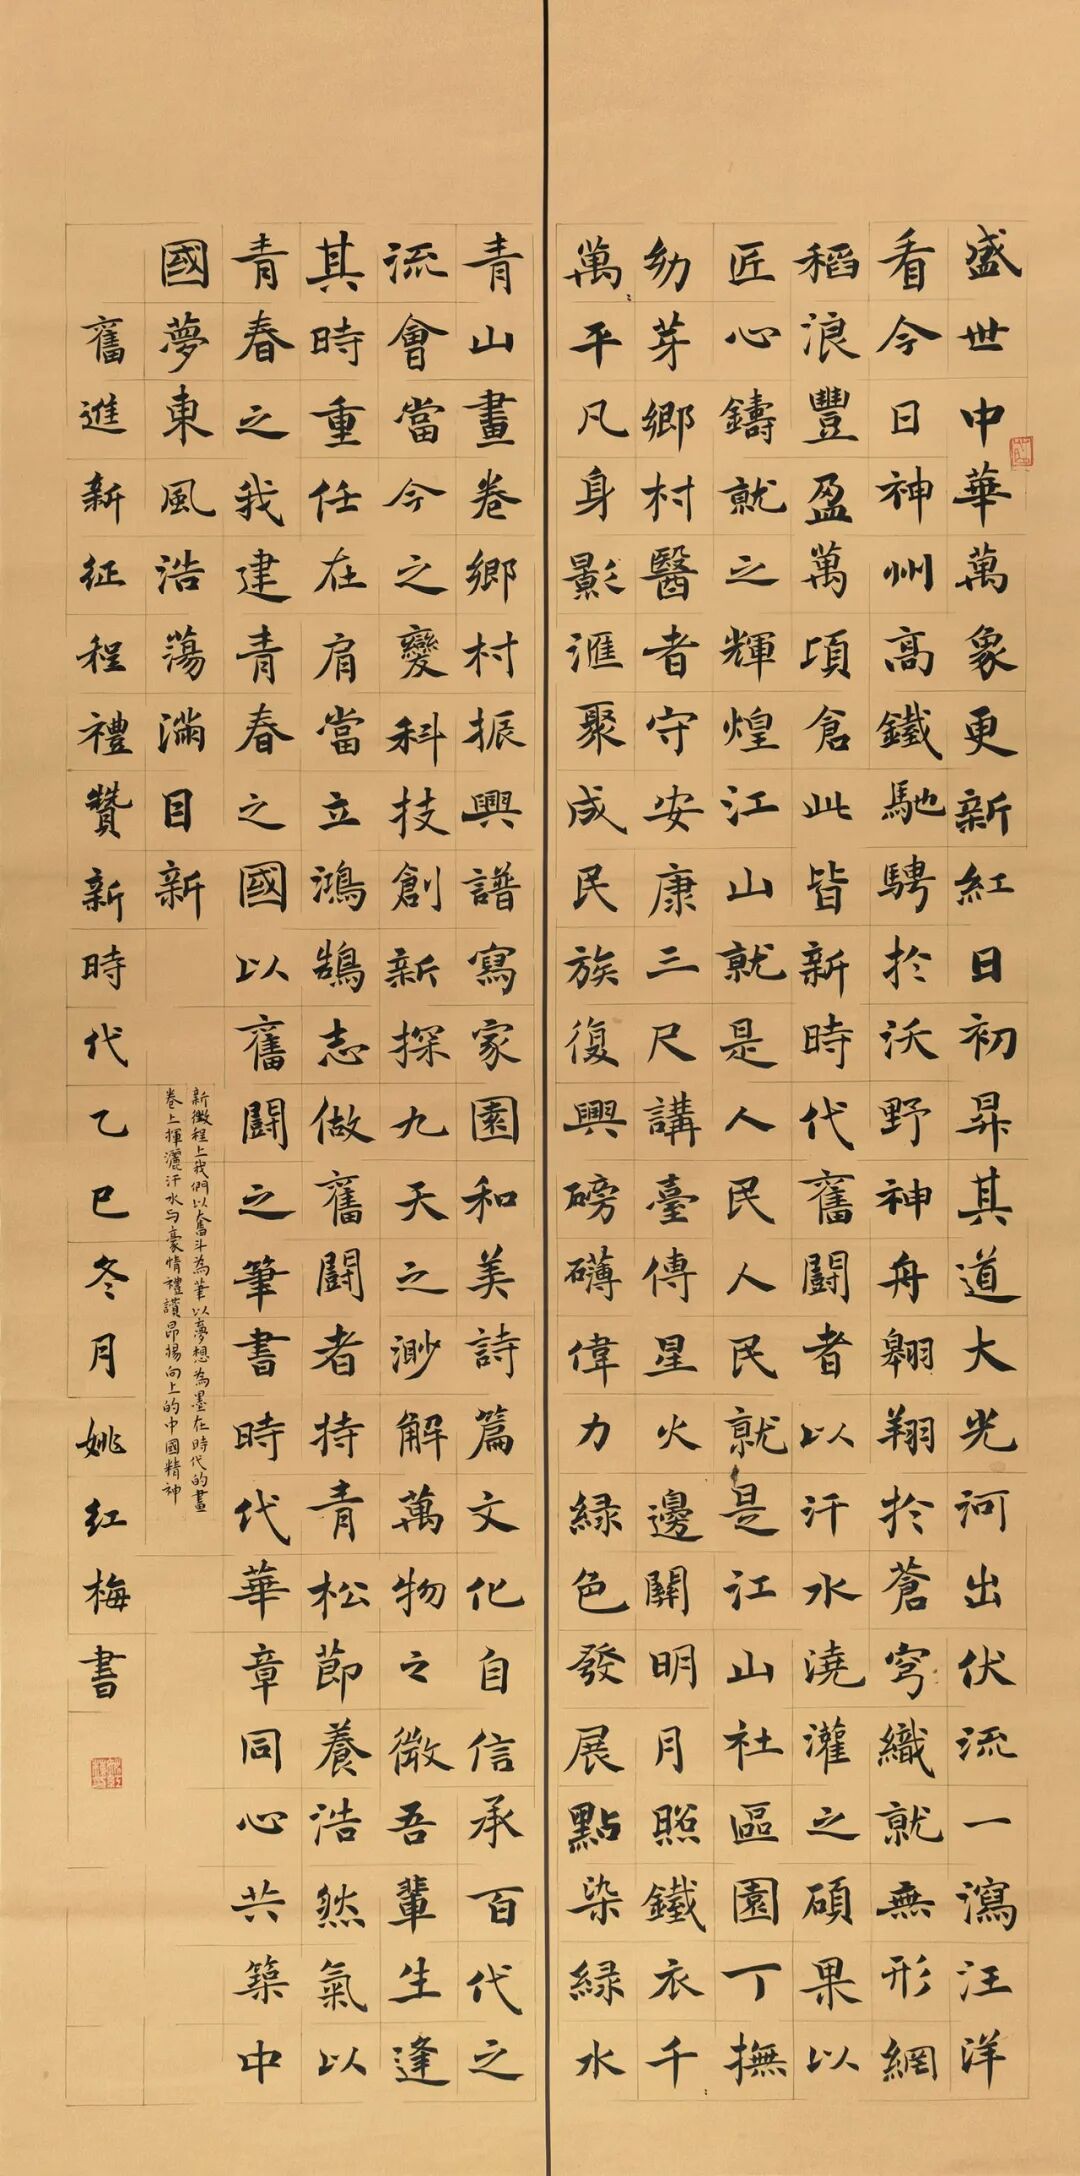 盛世中華萬象更新紅日初昇其道大光河出伏流一瀉汪洋
看今日神州高鐵馳騁於沃野神舟翱翔於蒼穹織就無形網
稻浪豐盈萬頃倉此皆新時代奮鬪者以汗水澆灌之碩果以
匠心鑄就之輝煌江山就是人民人民就是江山社區園丁撫
幼芽鄉村醫者守安康三尺講臺傳星火邊關明月照鐵衣千
萬平凡身影滙聚成民族復興磅礴偉力緑色發展點染緑水
青山畫卷鄉村振興譜寫家園和美詩篇文化自信承百代之
流會當今之變科技創新探九天之渺解萬物之微吾輩生逢
其時重任在肩當立鴻鵠志做奮鬪者持青松節養浩然氣以
青春之我建青春之國以奮鬪之筆書時代華章同心共築中
國夢東風浩蕩滿目新
新徵程上我們以奮斗為筆以夢想為墨在時代的畫
卷上揮灑汗水与豪情禮讚昂揚向上的中國精神
奮進新征程禮贊新時代乙巳冬月姚红梅書